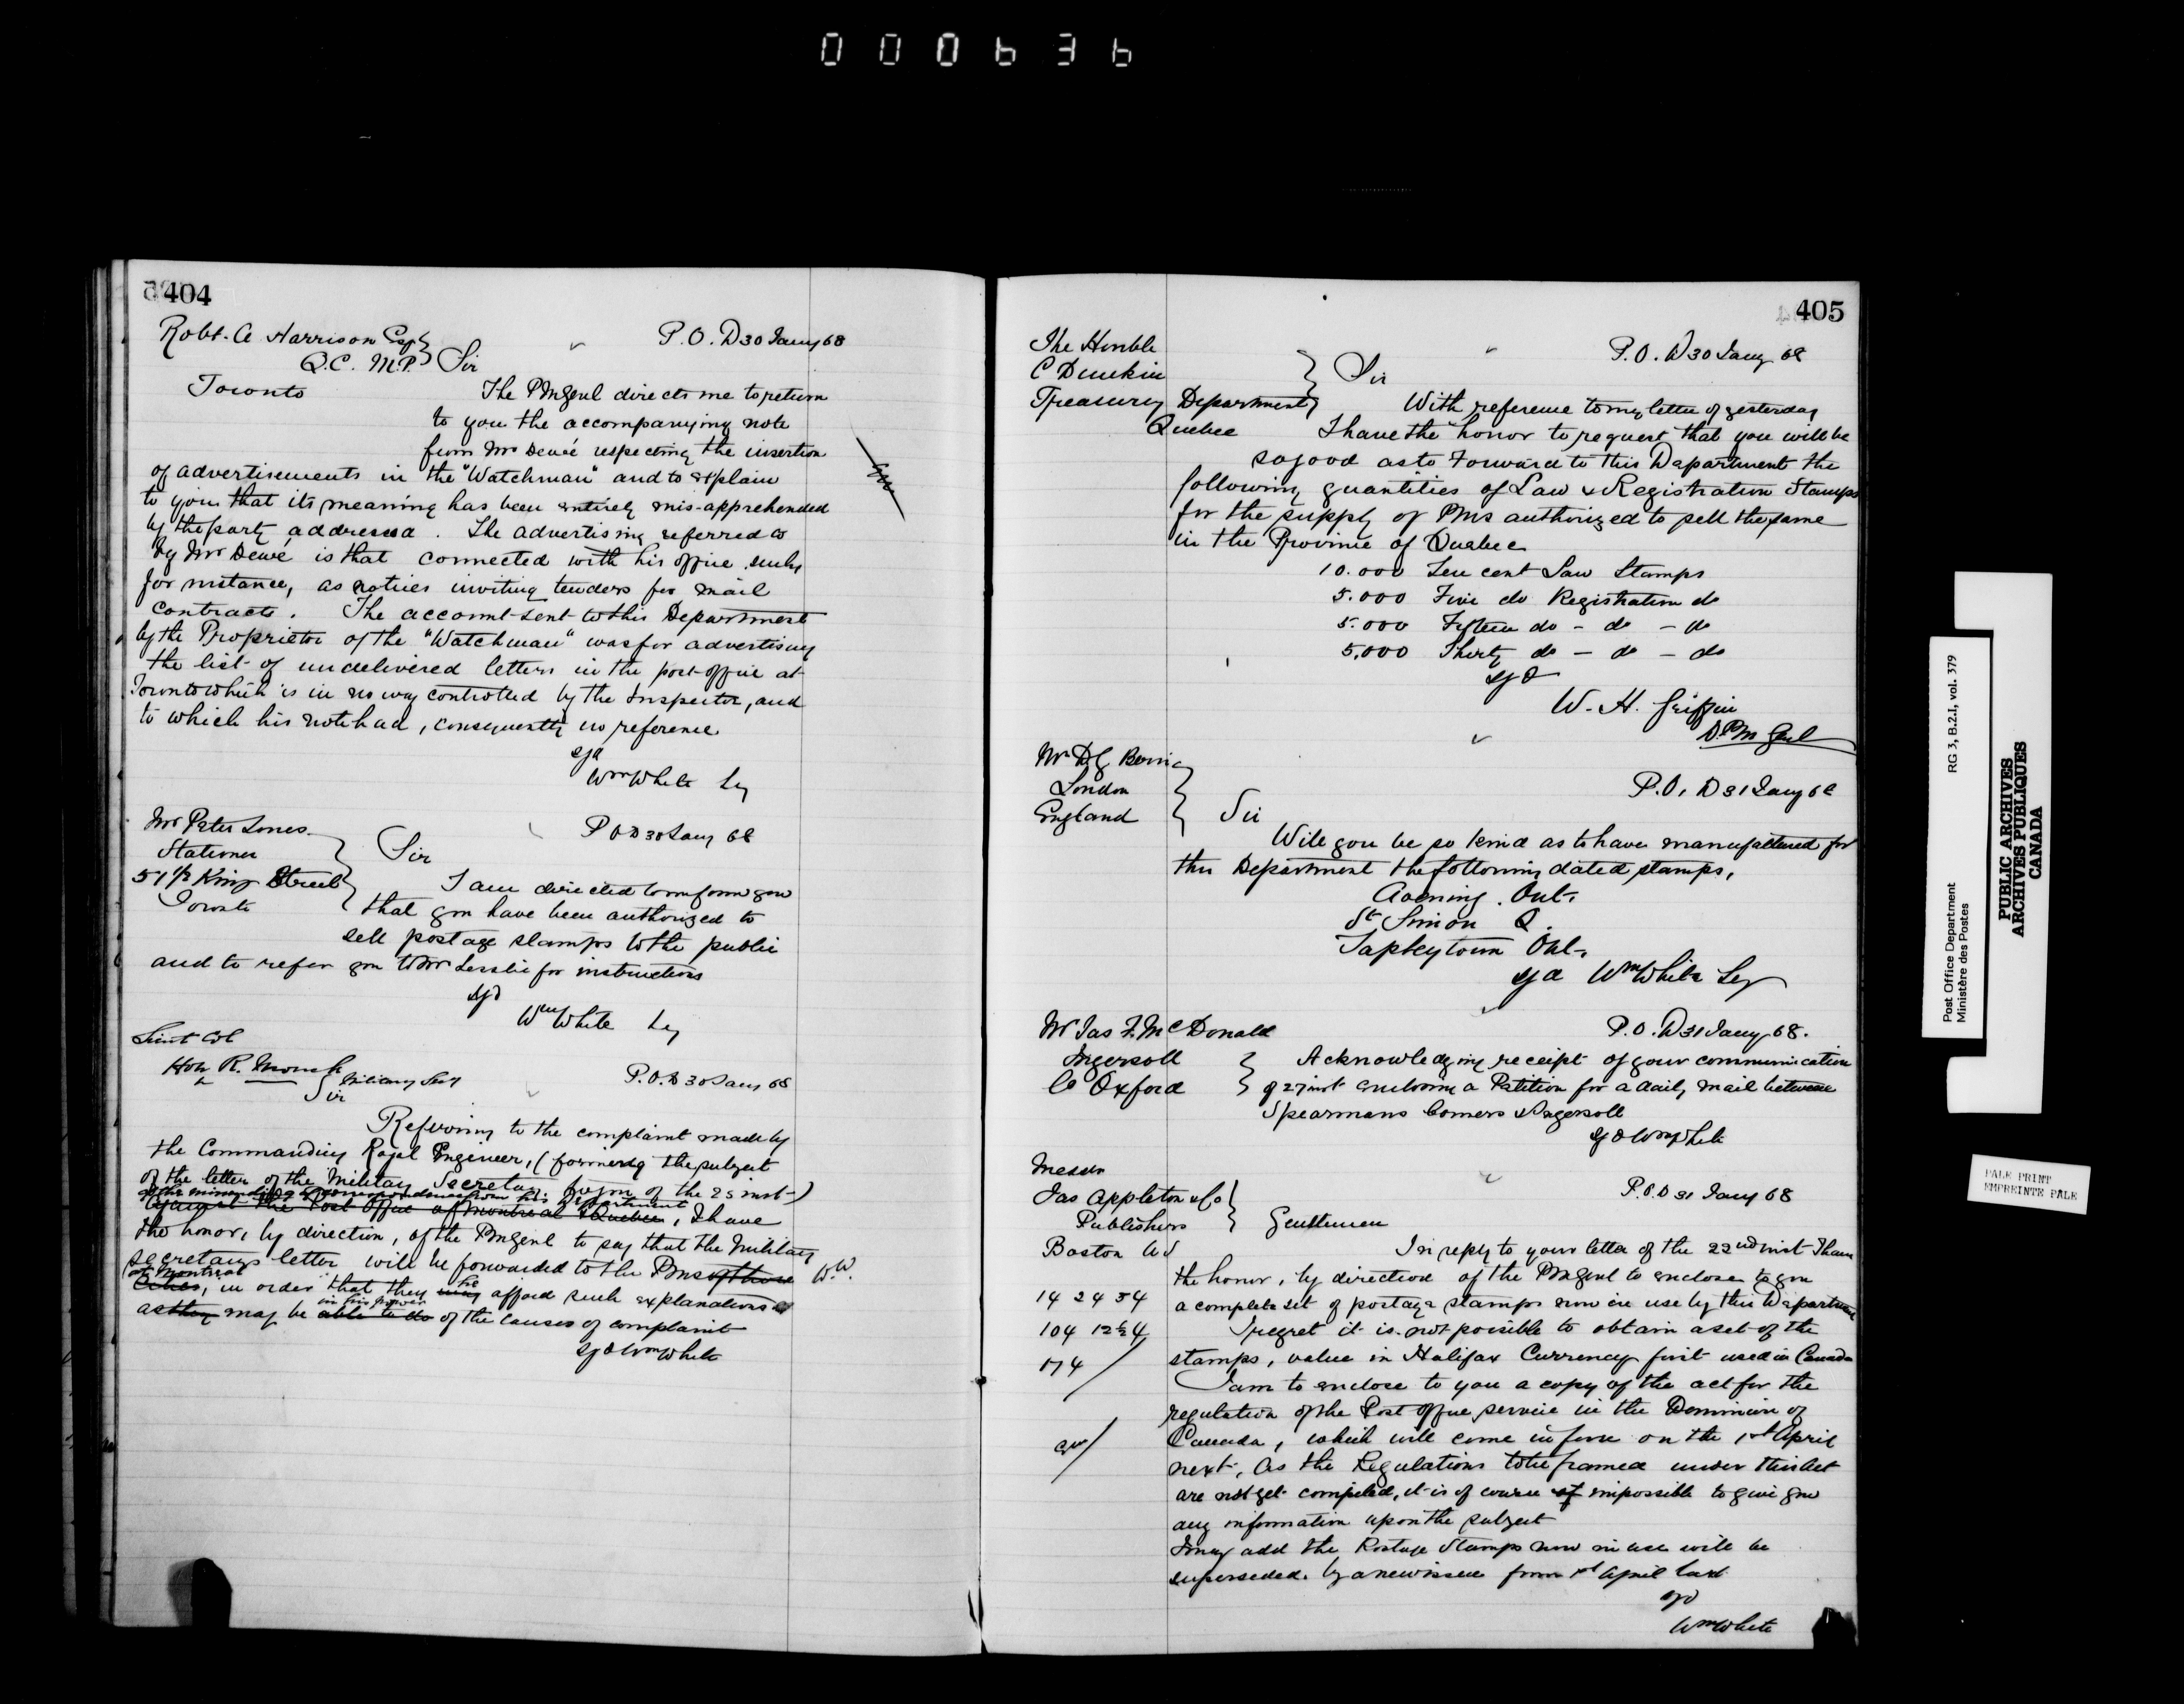 000636
404
Robt. A Harrison Esq
Q.C. M.P.
Toronto
P.O.D 30 Jany 68
Sir
The PMGenl directs me to return
to you the accompanying note
from Mr Dewé respecting the insertion
of advertisements in the "Watchman" and to explain
to you that its meaning has been entirely mis-apprehended
by the party addressed. The advertising referred to
by Mr Dewé is that connected with his office such
for instance, as notices inviting tenders for mail
contracts. The account sent to this Department
by the Proprietor of the "Watchman" was for advertising
the list of undelivered letters in the post-office at
Toronto which is in no way controlled by the Inspector, and
to which his note had, consequently no reference
sgd
Wm White Sy
Mr Peter Jones
Stationer
51 1/2 King Street
Toronto
P.O.D 30 Jany 68
Sir
I am directed to inform you
that you have been authorized to
sell postage stamps to the public
and to refer you to Mr Lesslie for instructions
sgd
Wm White Sy
Lieut Col
Hon R. Monck
Military Secy
P.O.D 30 Jany 68
Sir
Referring to the complaint made by
the Commanding Royal Engineer, (forming the subject
of the letter of the Military Secretary of the 25 inst-)
of the correspondence from his Department
against the Post Office at Montreal & Quebec, I have
the honor, by direction, of the PMGenl to say that the Military
Secretarys letter will be forwarded to the PMs of those W.W.
at Montreal
Cities, in order that they may afford such explanations
he
in his power
as they may be able to do of the causes of complaint
sgd Wm White
405
The Honble
C Dunkin
Treasury Department
Quebec
P.O.D 30 Jany 68
Sir
With reference to my letter of yesterday
I have the honor to request that you will be
so good as to forward to this Department the
following quantities of Law & Registration Stamps
for the supply of PMs authorized to sell the same
in the Province of Quebec
10.000 Ten cent Law Stamps
5.000 Five do Registration do
5.000 Fifteen do - do - do
5,000 Thirty do - do - do
sgd
W. H. Griffin
D.PM Genl
Mr D G Berri
London
England
P.O.D 31 Jany 68
Sir
Will you be so kind as to have manufactured for
this Department the following dated stamps,
Ont.
St Simon Q.
Tapleytown Ont.
sgd Wm White Sey
Mr Jas F. McDonald
Ingersoll
Co Oxford
P.O.D 31 Jany 68.
Acknowledging receipt of your communication
of 27 inst enclosing a Petition for a daily mail between
Spearmans Corners & Ingersoll
sgd Wm White
Messrs
Jas Appleton & Co
Publishers
Boston US
P.O.D 31 Jany 68
Gentlemen
In reply to your letter of the 22nd inst I have
the honor, by direction of the PMGenl to enclose to you
a complete set of postage stamps now in use by this Department
I regret it is not possible to obtain a set of the
stamps, value in Halifax Currency first used in Canada
I am to enclose to you a copy of the act for the
regulation of the Post office service in the Dominion of
Canada, which will come in force on the 1st April
next, As the Regulations to be framed under this Act
are not yet completed, it is of course of impossible to give you
any information upon the subject
I may add the Postage Stamps now in use will be
superseded by a new issue from 1st April
sgd
Wm White
RG 3, B.2.I, vol. 379
Post Office Department
Ministère des Postes
PUBLIC ARCHIVES
ARCHIVES PUBLIQUES
CANADA
PALE PRINT
EMPREINTE PALE